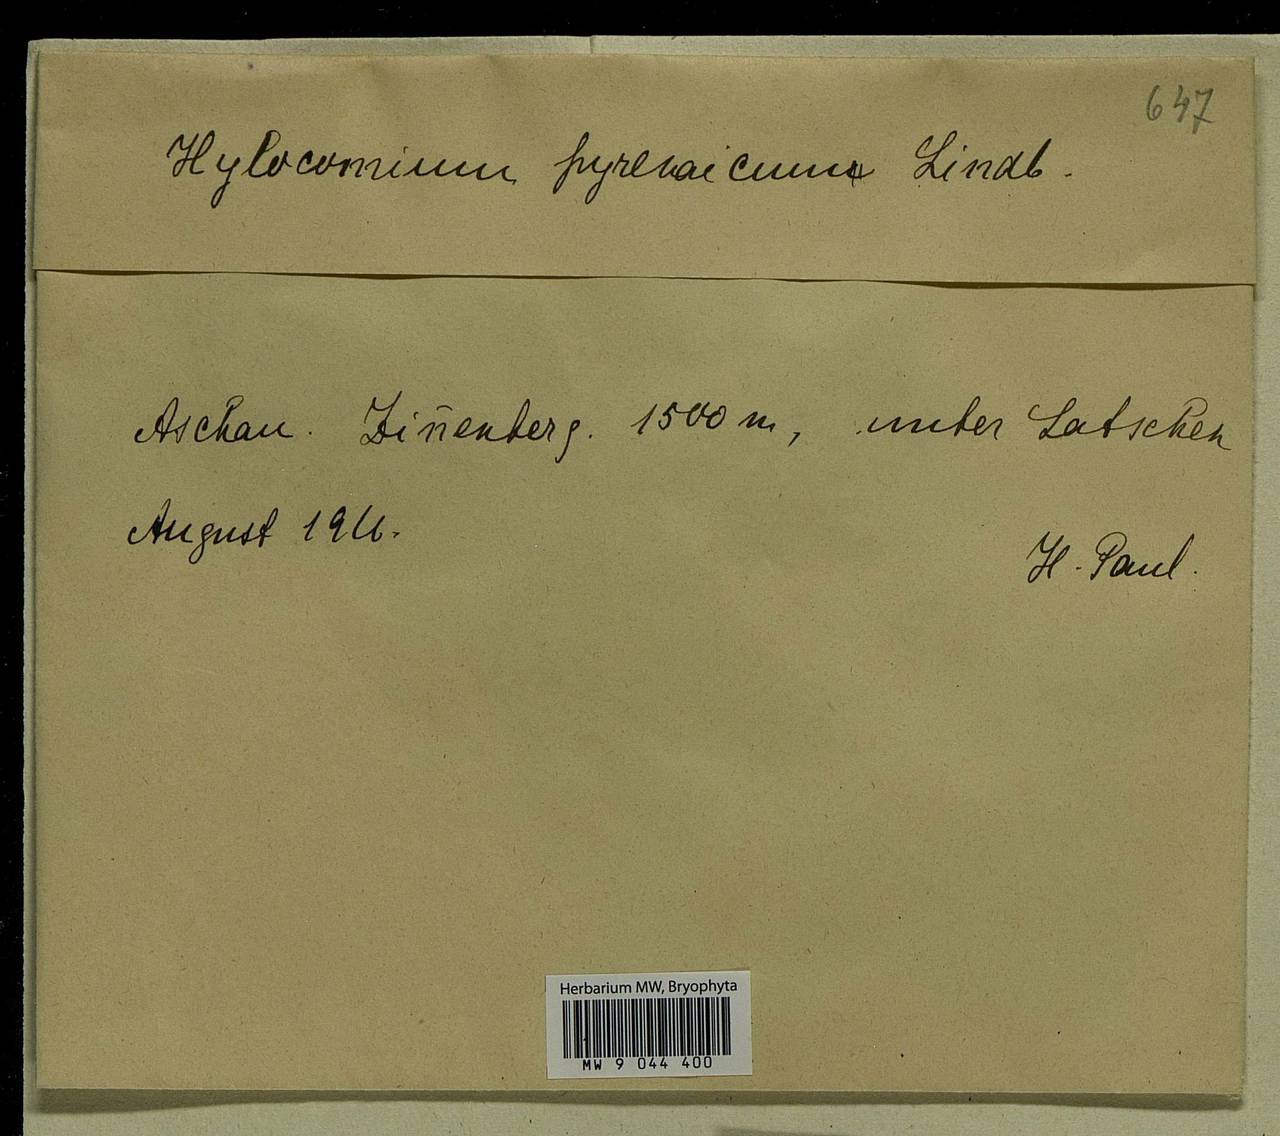 647
Hylocomium pyrenaicum Lindb.
Aschau. Zin̄enberg. 1500 m, unter Latschen
August 1911.
H. Paul.
Herbarium MW, Bryophyta
MW 9 044 400